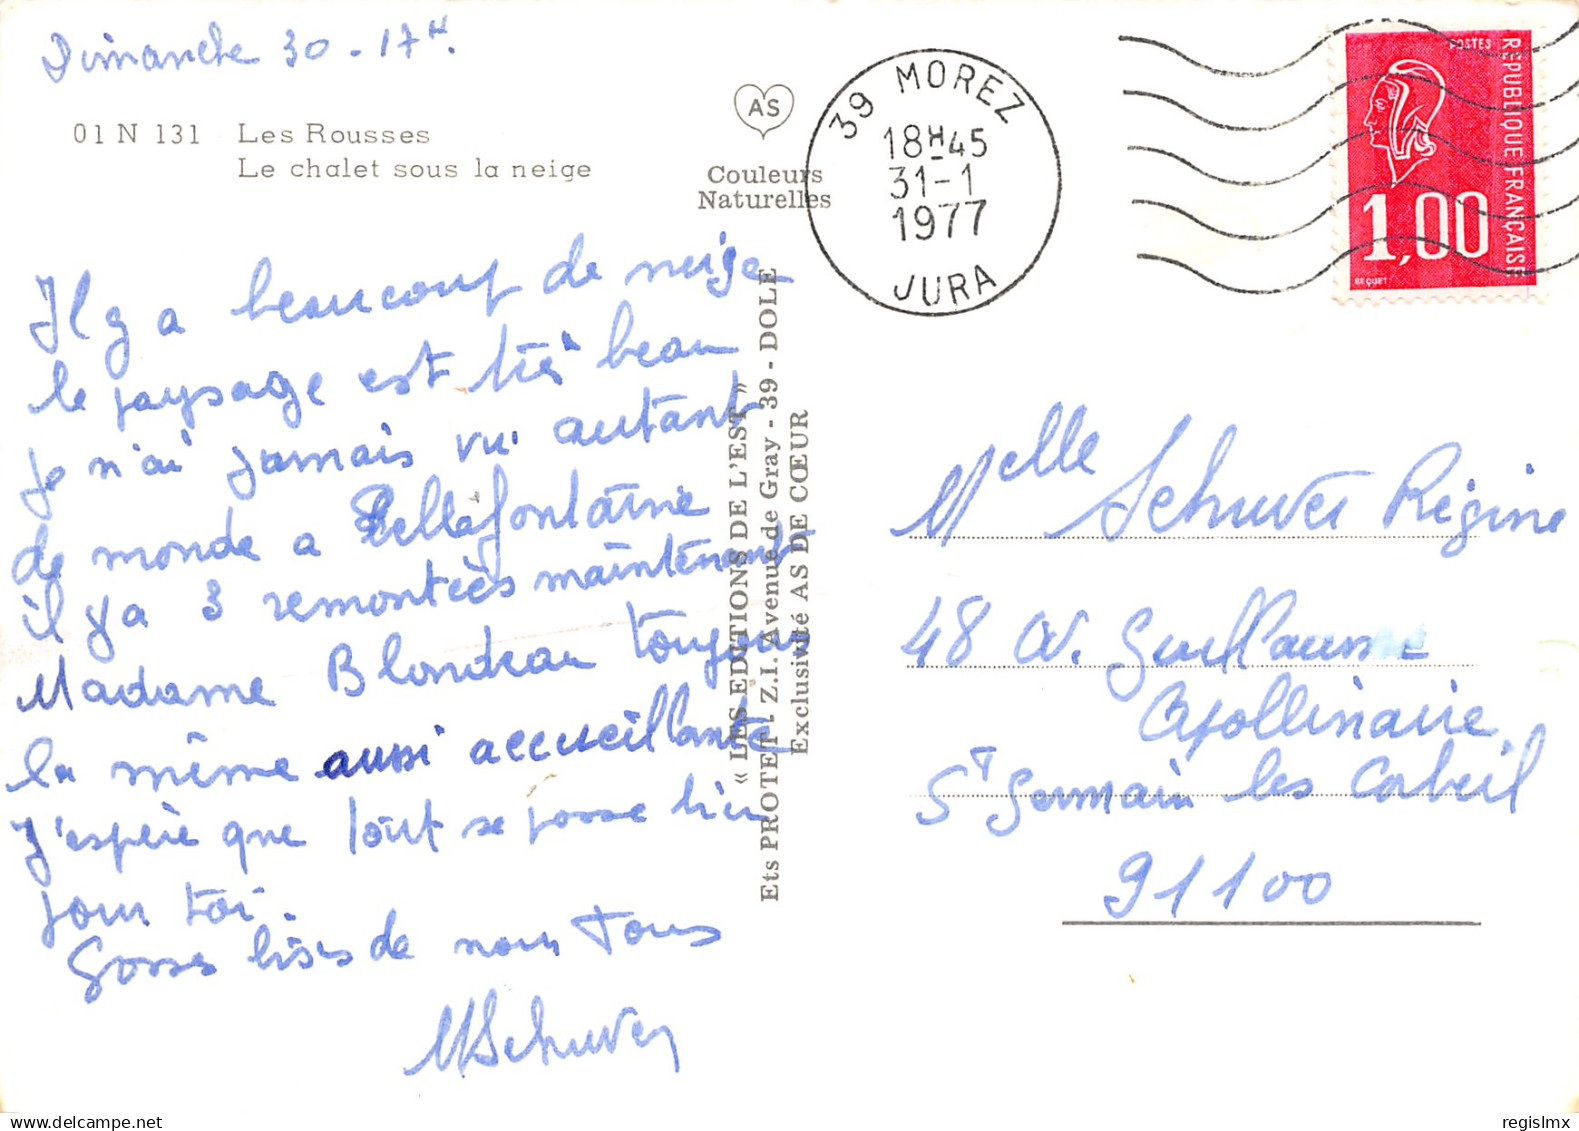 Dimanche 30 - 17H.
01 N 131 Les Rousses
Le chalet sous la neige
AS
Couleurs
Naturelles
Il y a beaucoup de neige
le paysage est très beau
je n'ai jamais vu autant
de monde a Bellefontaine
il y a 3 remontées maintenant
Madame Blondeau toujours
la même aussi accueillante
J'espère que tout se passe bien
pour toi.
Gosses bises de nous tous
MSchuver
« LES EDITIONS DE L'EST »
Ets PROTET - Z.I. Avenue de Gray - 39 - DOLE
Exclusivité AS DE CŒUR
39 MOREZ
18H45
31-1
1977
JURA
POSTES
REPUBLIQUE FRANÇAISE
1,00
BEQUET
Melle Schuver Régine
48 Av. Guillaume
Apollinaire
ST Germain les Corbeil
91100
regislmx